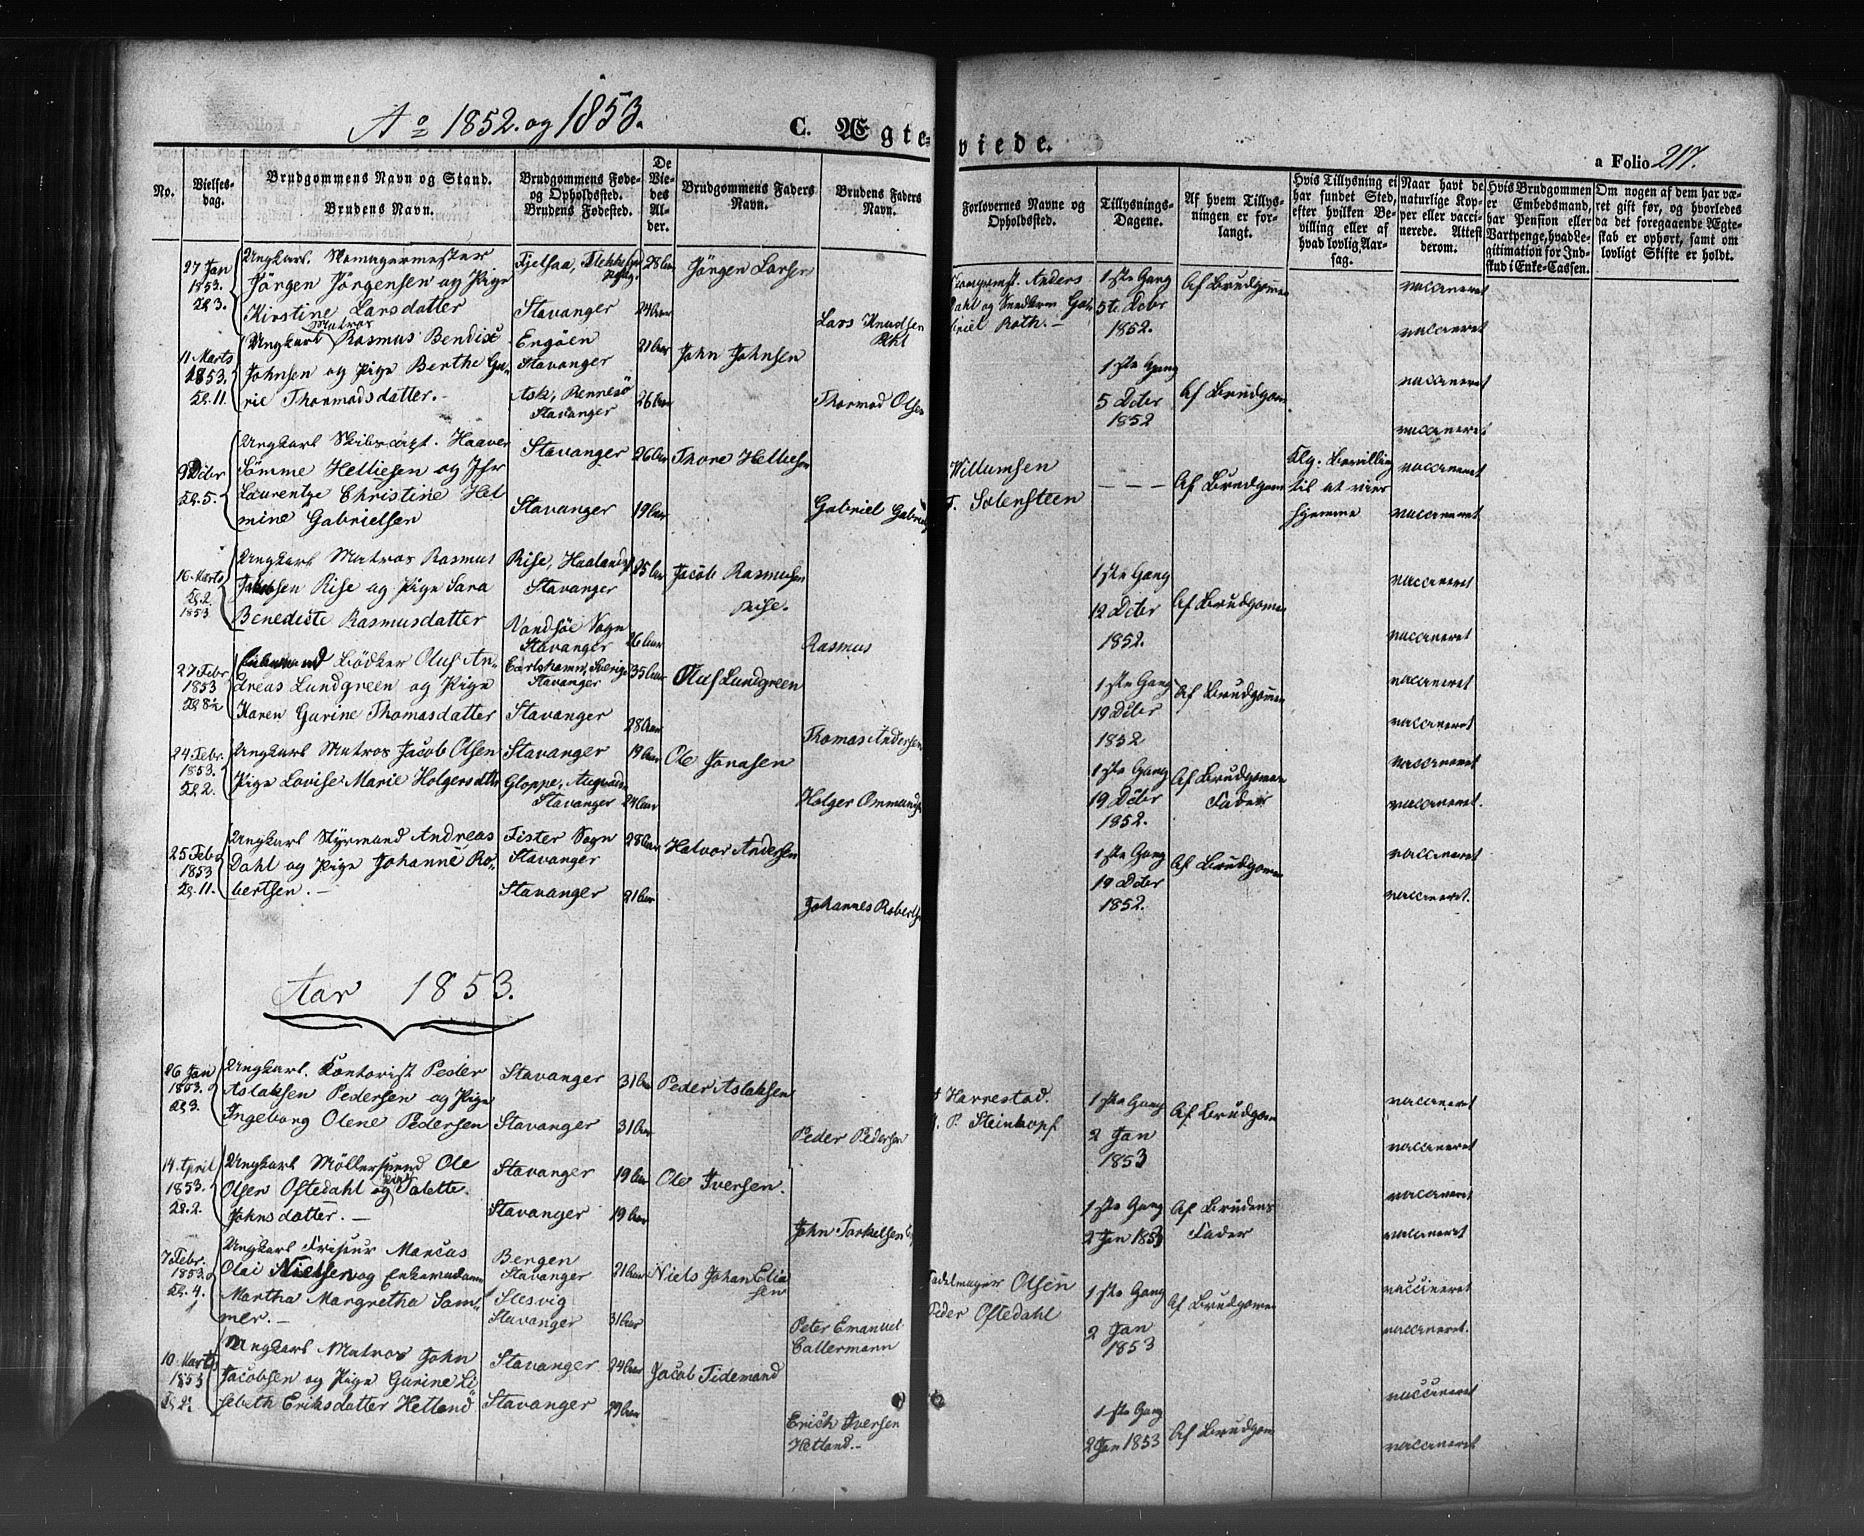 Ao 1852. og 1853.
C. Ægteviede.
a Folio 217.
No.
Vielses-
dag.
Brudgommens Navn og Stand.
Brudens Navn.
Brudgommens Føde-
og Opholdssted.
Brudens Fødested.
De
Vie-
des
Al-
der.
Brudgommens Faders
Navn.
Brudens Faders
Navn.
Forlovernes Navne og
Opholdssted.
Tillysnings-
Dagene.
Af hvem Tillys-
ningen er for-
langt.
Hvis Tillysning ei
har fundet Sted,
efter hvilken Be-
villing eller af
hvad lovlig Aar-
sag.
Naar havt de
naturlige Kop-
per eller vacci-
nerede. Attest
derom.
Hvis Brudgommen
er Embedsmand,
har Pension eller
Vartpenge, hvad Le-
gitimation for Ind-
skud i Enke-Cassen.
Om nogen af dem har væ-
ret gift før, og hvorledes
da det foregaaende Ægte-
skab er ophørt, samt om
lovligt Skifte er holdt.
27 Jan
1853.
Kl. 3.
Ungkarl.
Jörgen Jörgensen og Pige
Kirstine Larsdatter
Fjelsaa,
Stavanger
28 Aar
24 Aar
Jörgen Larsen
Lars Knudsen
Anders
Dahl og Snedkerm Ga-
briel Roth. —
1ste Gang
5te Dcbr
1852.
Af Brudgomen
vaccineret
vaccineret
11 Marts
1853.
Kl. 11.
Ungkarl Matros Rasmus Bendix
Johnsen og Pige Berthe Gu-
rie Thormodsdatter. —
Engöen
Stavanger
Ask, Rennesö
Stavanger
21 Aar
26 Aar
John Johnsen
Thormod Olsen
1ste Gang
5 Dcbr
1852
Af Brudgom
vaccineret
vaccineret
9 Dcbr
Kl. 5.
Ungkarl Skibscapt. Haaver
Sömme Helliesen og Jfr
Laurentze Christine Hel
mine Gabrielsen
Stavanger
Stavanger
26 Aar
19 Aar
Thore Helliesen
Gabriel
Willumsen
T. Salensteen
— — —
Af Brudgom
Klg. Bevilling
til at vies
hjemme
vaccineret
vaccineret
16 Marts
Kl. 2.
1853
Ungkarl Matros Rasmus
Jakobsen Rise og Pige Sara
Benedicte Rasmusdatter
Rise, Haaland
Stavanger
Sogn
Stavanger
25 Aar
26 Aar
Jacob Rasmussen
Rise.
Rasmus
1ste Gang
12 Dcbr
1852.
Af Brudgomen
vaccineret
vaccineret
27 Febr
1853
Kl. 8½
Bödker Oluf An-
dreas Lundgreen og Pige
Karen Gurine Thomasdatter
Carlshamn, Sverige
Stavanger
Stavanger
35 Aar
28 Aar
Oluf Lundgreen
Thomas Andersen
1ste Gang
19 Dcbr
1852
Af Brudgomen
vaccineret
vaccineret
24 Febr.
1853.
Kl. 2.
Ungkarl Matros Jacob Olsen
Pige Lovise Marie Holgersdatter
Stavanger
Gloppe,
Stavanger
19 Aar
24 Aar
Ole Jonasen
Holger Ommundsen
1ste Gang
19 Dcbr
1852.
Af Brudgomen
Fader
vaccineret
vaccineret.
25 Febr
1853
Kl. 11.
Ungkarl Styrmand Andreas
Dahl og Pige Johanne Ro-
bertsen. —
Fister Sogn
Stavanger
Stavanger
28 Aar
21 Aar
Halvor Andersen
Johannes Robertsen
1ste Gang
19 Dcbr
1852.
Af Brudgomen
vaccineret
vaccineret.
Aar 1853.
26 Jan
1853.
Kl 3.
Ungkarl. Contorist Peder
Aslaksen Pedersen og Pige
Ingeborg Olene Pedersen
Stavanger
Stavanger
31 Aar
31 Aar
Peder Aslaksen
Peder Pedersen
Harrestad.
P. Steinkopf
1ste Gang
2 Jan
1853
Af Brudgom
vaccineret
vaccineret
14 April
1853.
Kl. 2.
Ungkarl Möllersvend Ole
Olsen Oftedahl og Pige Talette
Johnsdatter. —
Stavanger
Stavanger
19 Aar
19 Aar
Ole Iversen.
John Torkelsen
1ste Gang
2 Jan 1853
Af Brudens
Fader
vaccineret
vaccineret
7 Febr.
1853.
Kl. 4.
Ungkarl Friseur Marcus
Olai Nielsen og Enkemadam
Martha Margretha Som-
mer. —
Bergen
Stavanger
Slesvig
Stavanger
21 Aar
31 Aar
Niels Johan Elia
sen
Peter Emanuel
Callermann
Sadelmager Olsen
Peder Oftedahl
1ste Gang
2 Jan
1853
Af Brudgomen
vaccineret
vaccineret.
10 Marts
1853
Kl 2.
Ungkarl Matros John
Jacobsen og Pige Gurine Li
sebeth Eriksdatter Hetland
Stavanger
Stavanger
24 Aar
29 Aar
Jacob Tidemand
Erich Iversen
Hetland. —
1ste Gang
2 Jan 1853
Af Brudgom
vaccineret
vaccineret